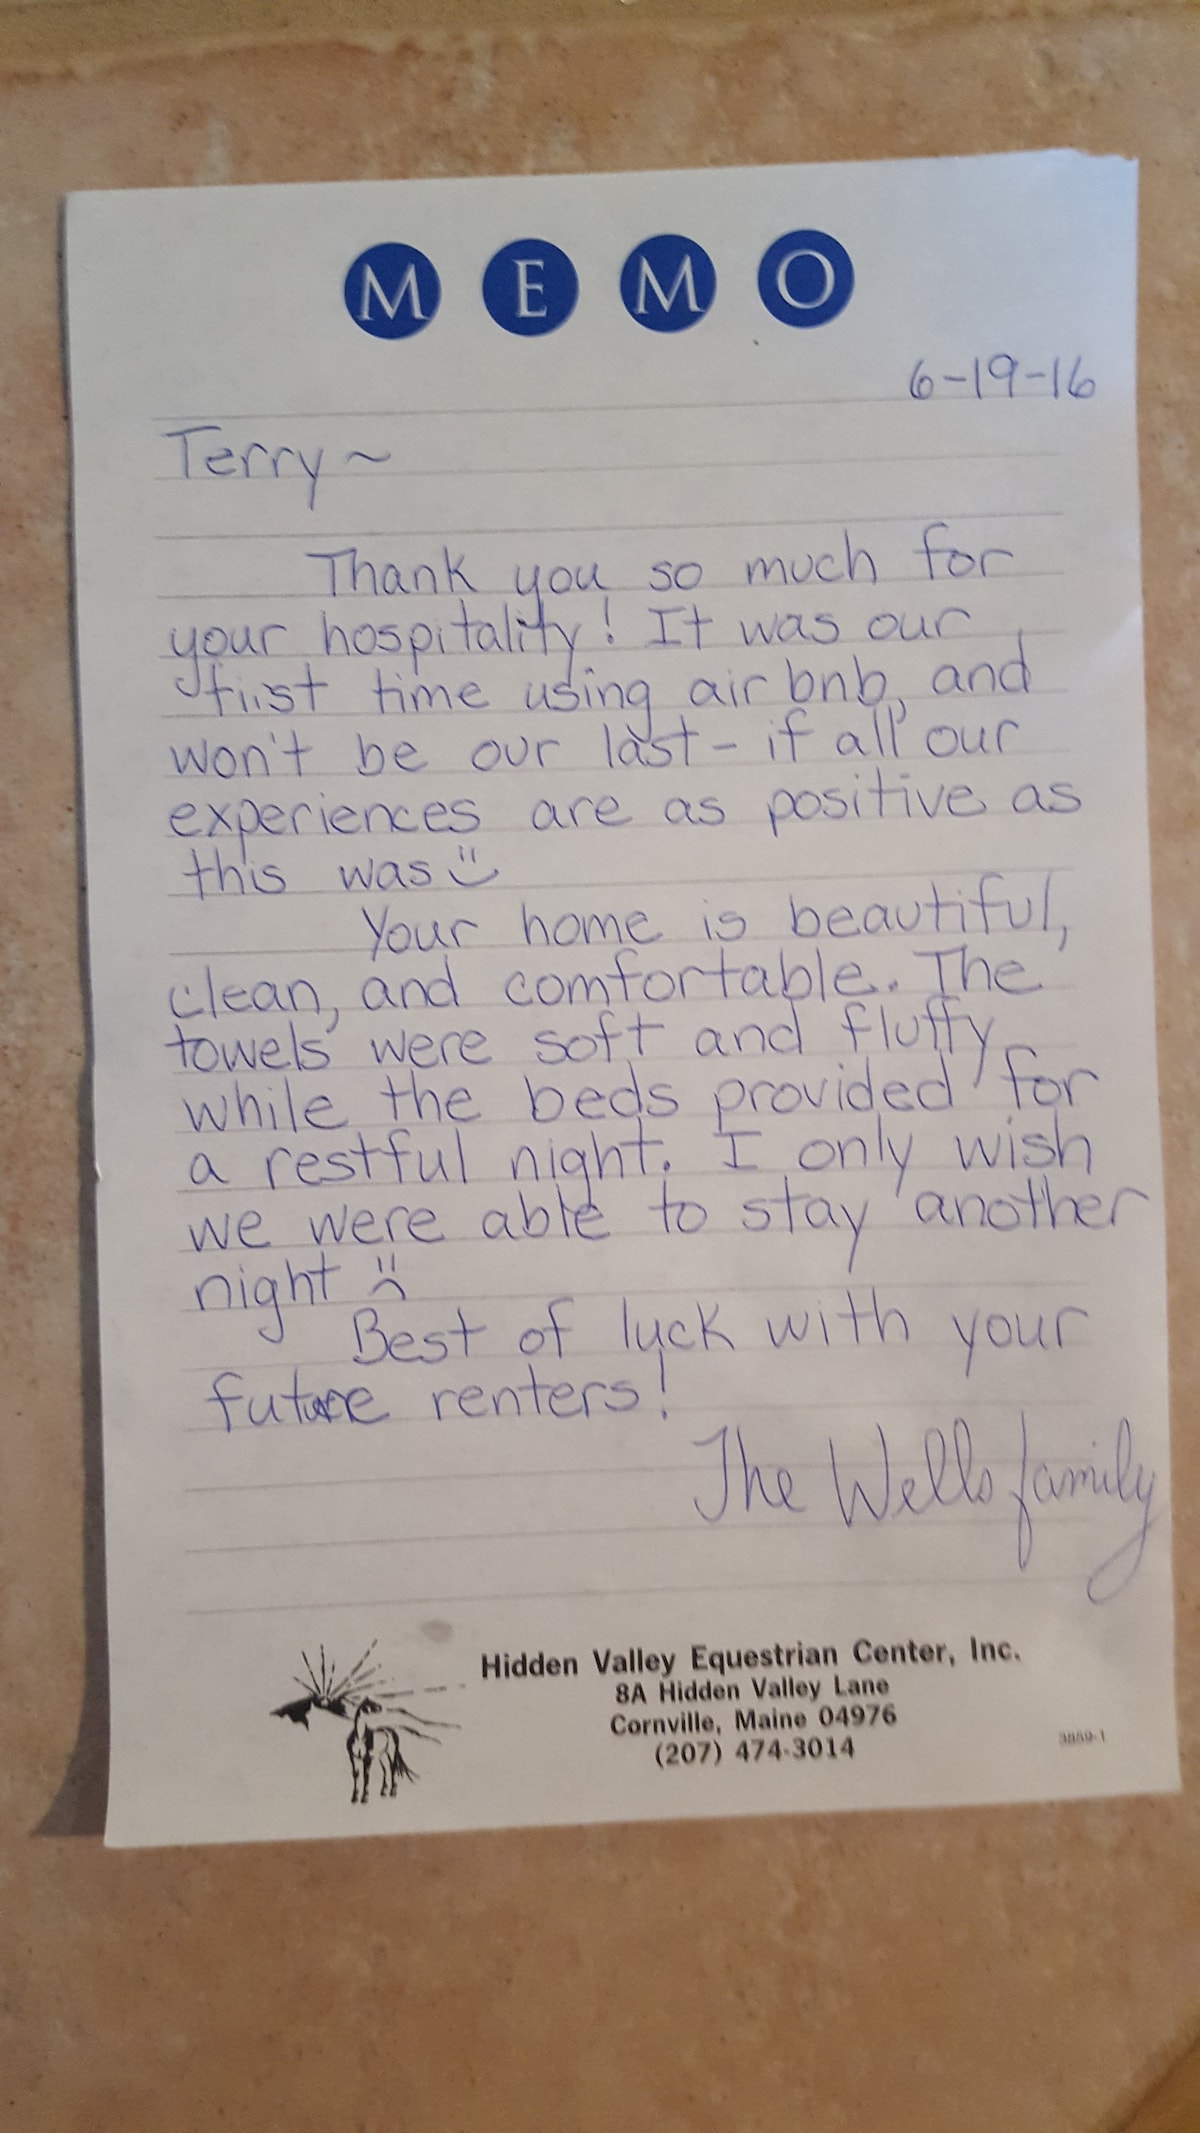 MEMO
6-19-16
Terry ~
Thank you so much for
your hospitality! It was our
first time using air bnb, and
won't be our last - if all our
experiences are as positive as
this was
Your home is beautiful,
clean, and comfortable. The
towels were soft and fluffy,
while the beds provided for
a restful night. I only wish
we were able to stay another
night
Best of luck with your
future renters!
The Wells family
Hidden Valley Equestrian Center, Inc.
8A Hidden Valley Lane
Cornville, Maine 04976
(207) 474-3014
3859-1